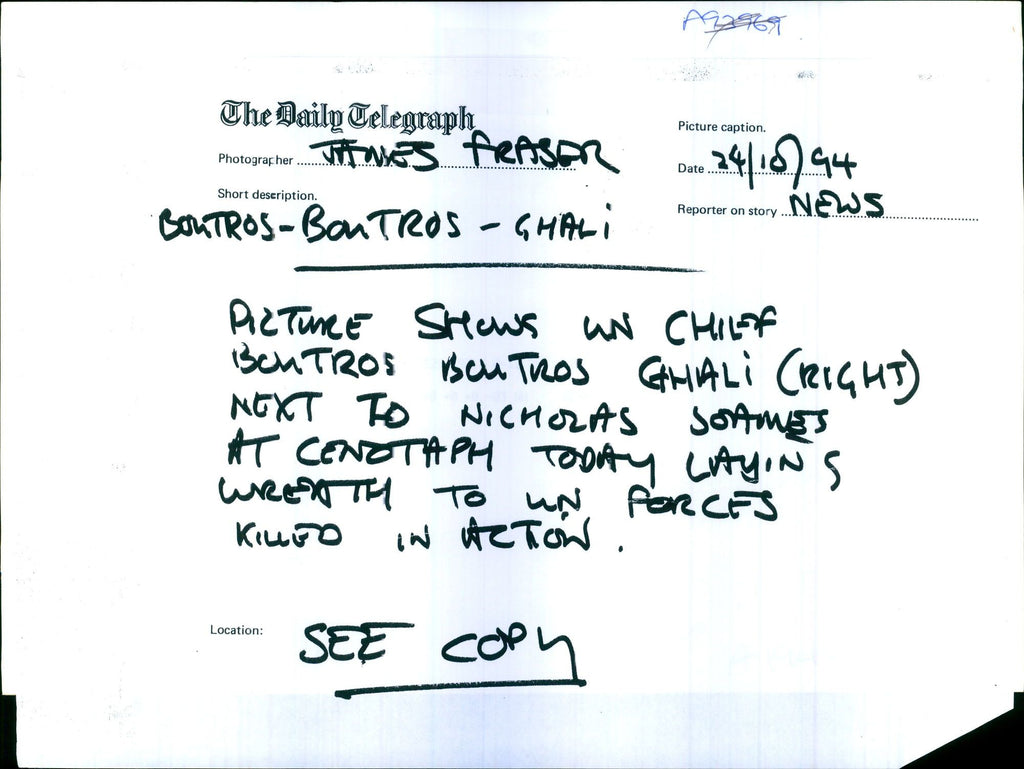 A92969
The Daily Telegraph
Picture caption.
Photographer JAMES FRASER
Date 24/10/94
Short description.
Reporter on story NEWS
BOUTROS-BOUTROS-GHALI
PICTURE SHOWS UN CHIEF
BOUTROS BOUTROS GHALI (RIGHT)
NEXT TO NICHOLAS SOAMES
AT CENOTAPH TODAY LAYING
WREATH TO UN FORCES
KILLED IN ACTION.
Location: SEE COPY